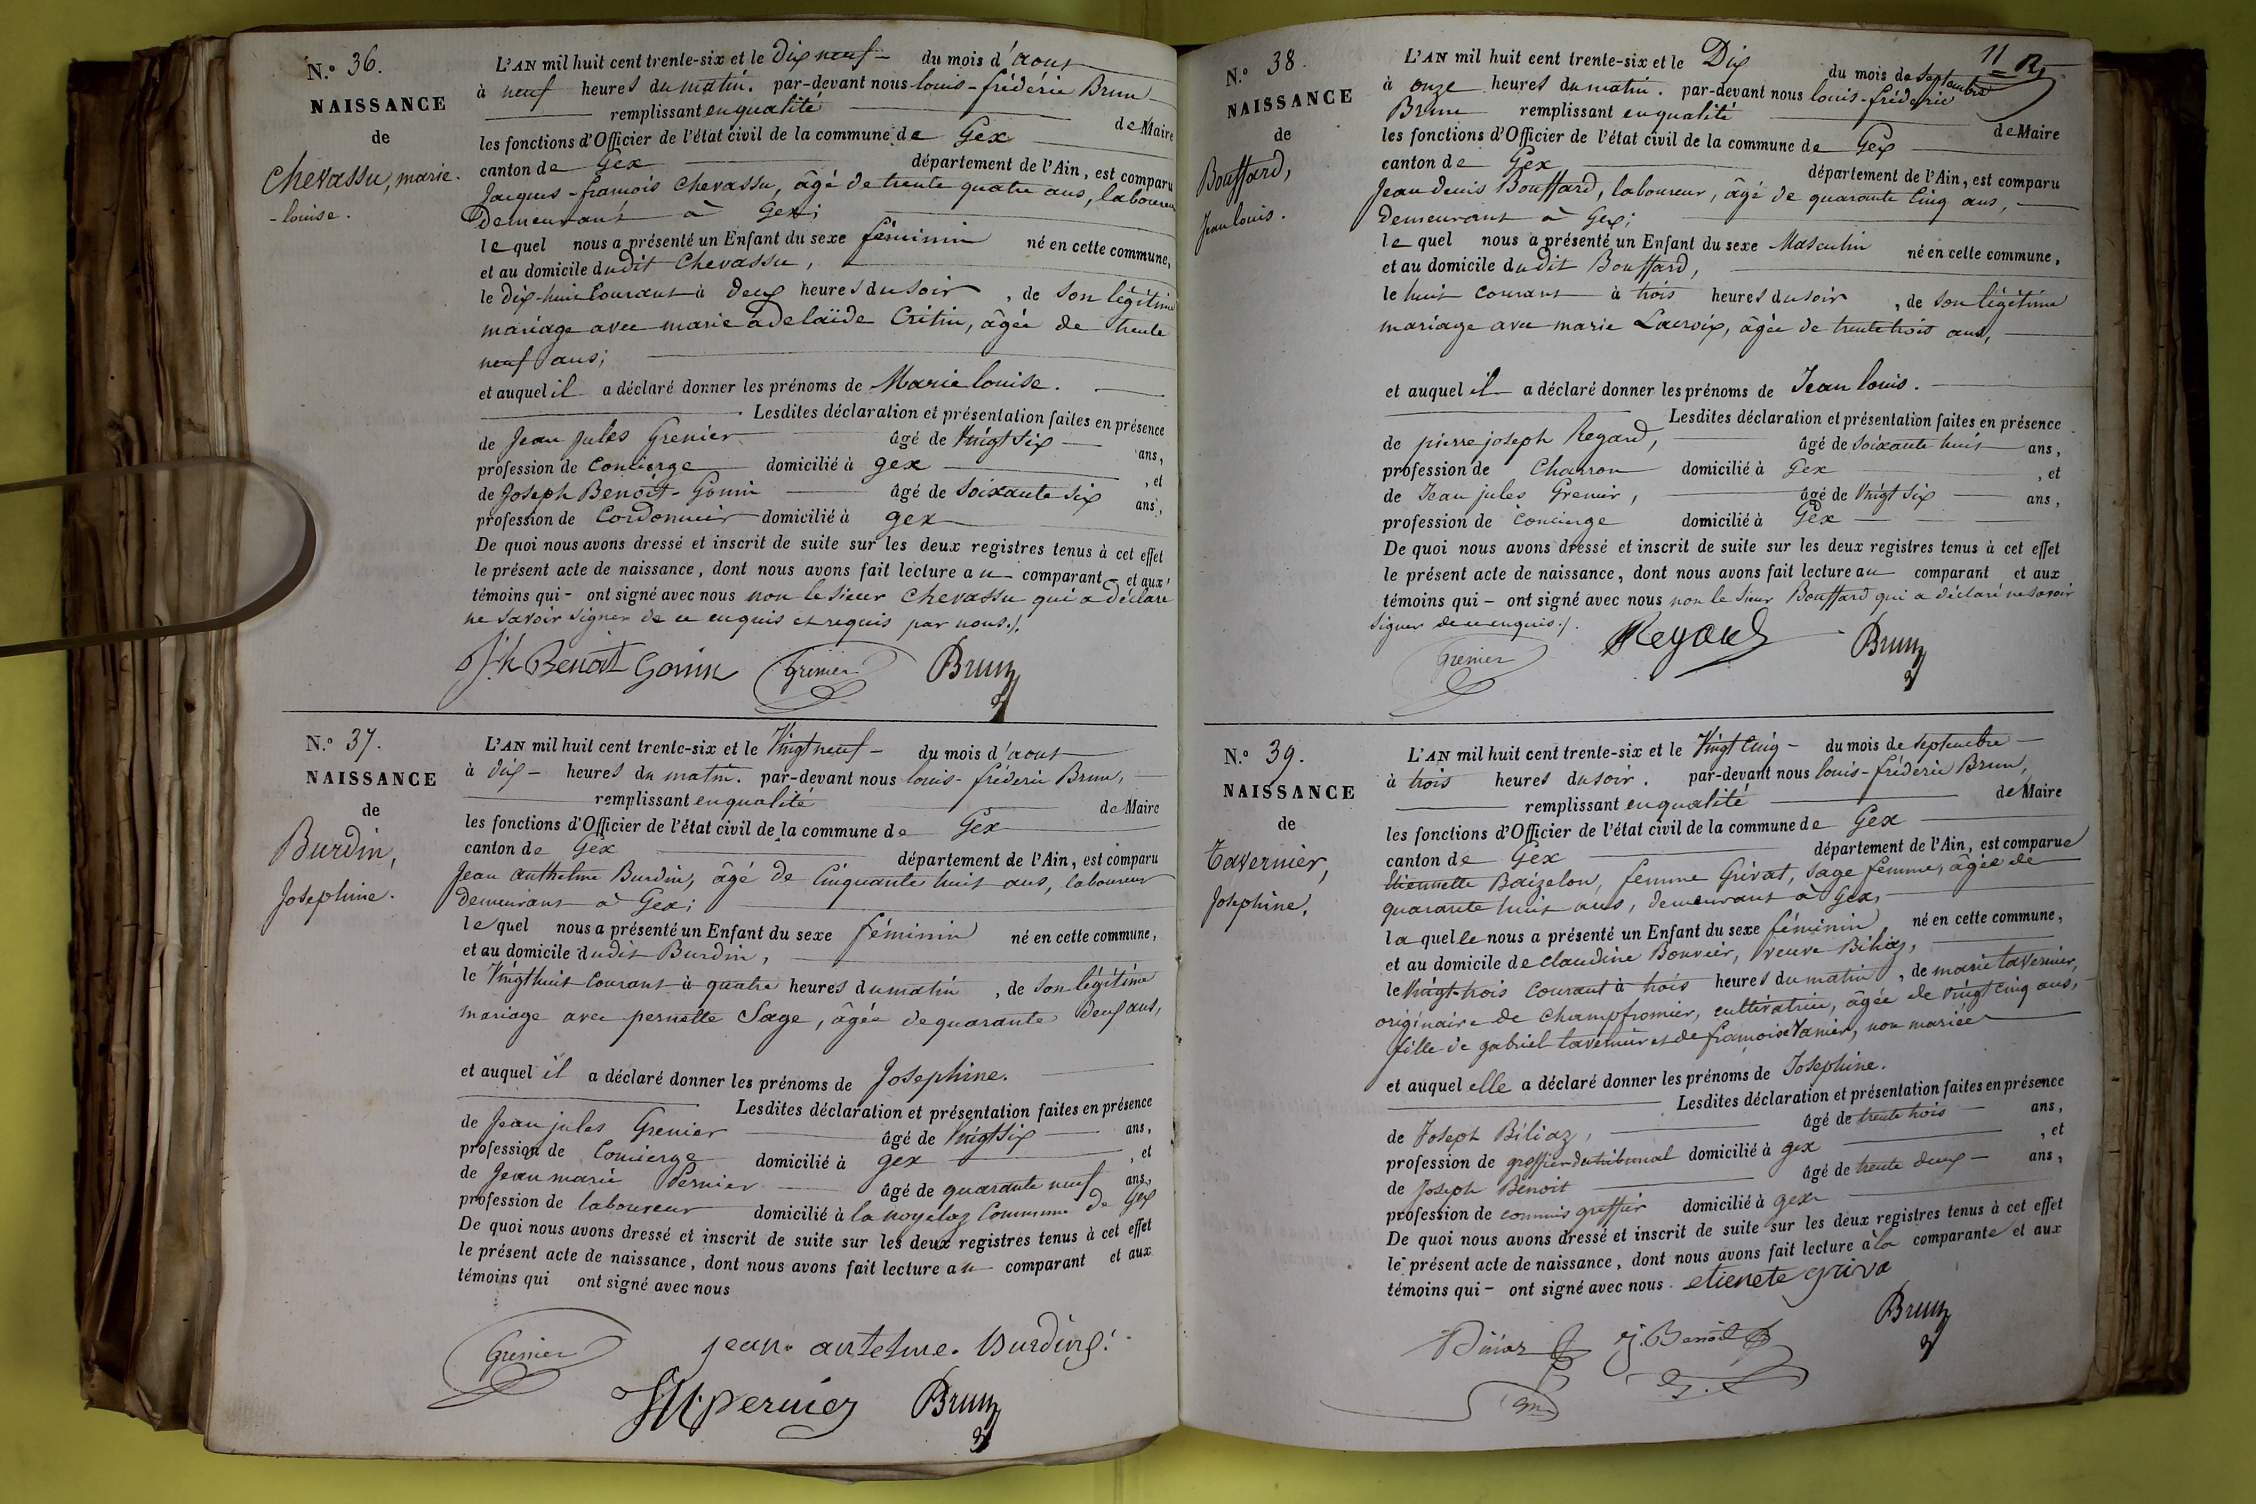 N.º 36.
NAISSANCE
de
Chevassu, marie
-louise.
L'AN mil huit cent trente-six et le Dix neuf du mois d'aout
à neuf heures du matin. par-devant nous louis-fréderic Brun
remplissant en qualité de Maire
les fonctions d'Officier de l'état civil de la commune de Gex
canton de Gex département de l'Ain, est comparu
Jacques-francois Chevassu, âgé de trente quatre ans, laboureur
Demeurant à Gex;
le quel nous a présenté un Enfant du sexe féminin né en cette commune,
et au domicile dudit Chevassu,
le dix-huit Courant à deux heures du soir, de son légitime
mariage avec marie adelaïde Critin, âgée de trente
neuf ans;
et auquel il a déclaré donner les prénoms de Marie louise.
Lesdites déclaration et présentation faites en présence
de Jean Jules Grenier âgé de Vingt six ans,
profession de Concierge domicilié à gex, et
de Joseph Benoit-Gonin âgé de soixante six ans,
profession de Cordonnier domicilié à gex
De quoi nous avons dressé et inscrit de suite sur les deux registres tenus à cet effet
le présent acte de naissance, dont nous avons fait lecture au comparant et aux
témoins qui- ont signé avec nous non le sieur Chevassu qui a déclaré
ne savoir signer de ce enquis et requis par nous./.
Jh Benoit Gonin Grenier Brun
N.º 37.
NAISSANCE
de
Burdin,
Josephine.
L'AN mil huit cent trente-six et le Vingt neuf- du mois d'aout
à dix- heures du matin. par-devant nous louis-fréderic Brun,
remplissant en qualité de Maire
les fonctions d'Officier de l'état civil de la commune de Gex
canton de Gex département de l'Ain, est comparu
Jean Anthelme Burdin, âgé de Cinquante huit ans, laboureur
demeurant à Gex;
le quel nous a présenté un Enfant du sexe féminin né en cette commune,
et au domicile dudit Burdin,
le Vingt huit Courant à quatre heures du matin, de son légitime
mariage avec pernette Sage, âgée de quarante deux ans,
et auquel il a déclaré donner les prénoms de Josephine.
Lesdites déclaration et présentation faites en présence
de Jean jules Grenier âgé de Vingt six ans,
profession de Concierge domicilié à gex, et
de Jean marie Pernier âgé de quarante neuf ans,
profession de laboureur domicilié à la noyelaz Commune de Gex
De quoi nous avons dressé et inscrit de suite sur les deux registres tenus à cet effet
le présent acte de naissance, dont nous avons fait lecture au comparant et aux
témoins qui ont signé avec nous
Grenier jean antelme Burding
JM pernier Brun
11
N.º 38.
NAISSANCE
de
Bouffard,
Jean louis.
L'AN mil huit cent trente-six et le Dix du mois de Septembre
à onze heures du matin. par-devant nous louis-fréderic
Brun remplissant en qualité de Maire
les fonctions d'Officier de l'état civil de la commune de Gex
canton de Gex département de l'Ain, est comparu
Jean denis Bouffard, laboureur, âgé de quarante Cinq ans,
demeurant à Gex;
le quel nous a présenté un Enfant du sexe Masculin né en cette commune,
et au domicile dudit Bouffard,
le huit courant à trois heures du soir, de son légitime
mariage avec marie Lacroix, âgée de trente trois ans,
et auquel il a déclaré donner les prénoms de Jean louis.
Lesdites déclaration et présentation faites en présence
de pierre joseph Regard, âgé de soixante huit ans,
profession de Charron domicilié à Gex, et
de Jean jules Grenier, âgé de Vingt six ans,
profession de concierge domicilié à Gex
De quoi nous avons dressé et inscrit de suite sur les deux registres tenus à cet effet
le présent acte de naissance, dont nous avons fait lecture au comparant et aux
témoins qui- ont signé avec nous non le Sieur Bouffard qui a déclaré ne savoir
signer de ce enquis./.
Grenier Regard Brun
N.º 39.
NAISSANCE
de
Tavernier,
Josephine.
L'AN mil huit cent trente-six et le Vingt Cinq- du mois de septembre
à trois heures du soir. par-devant nous louis-fréderic Brun,
remplissant en qualité de Maire
les fonctions d'Officier de l'état civil de la commune de Gex
canton de Gex département de l'Ain, est comparue
Etiennette Baizelon, femme Grivat, sage femme, âgée de
quarante huit ans, demeurant à Gex,
la quelle nous a présenté un Enfant du sexe féminin né en cette commune,
et au domicile de claudine Bouvier, veuve Biliaz,
le Vingt-trois Courant à trois heures du matin, de marie tavernier,
originaire de Champfromier, cultivatrice, âgée de Vingt Cinq ans,
fille de gabriel tavernier et de francoise Tanier, non mariée
et auquel elle a déclaré donner les prénoms de Josephine.
Lesdites déclaration et présentation faites en présence
de Joseph Biliaz, âgé de trente trois ans,
profession de greffier du tribunal domicilié à gex, et
de Joseph Benoit âgé de trente deux- ans,
profession de commis greffier domicilié à gex
De quoi nous avons dressé et inscrit de suite sur les deux registres tenus à cet effet
le présent acte de naissance, dont nous avons fait lecture à la comparante et aux
témoins qui- ont signé avec nous. etienete griva
J. Benoit Brun